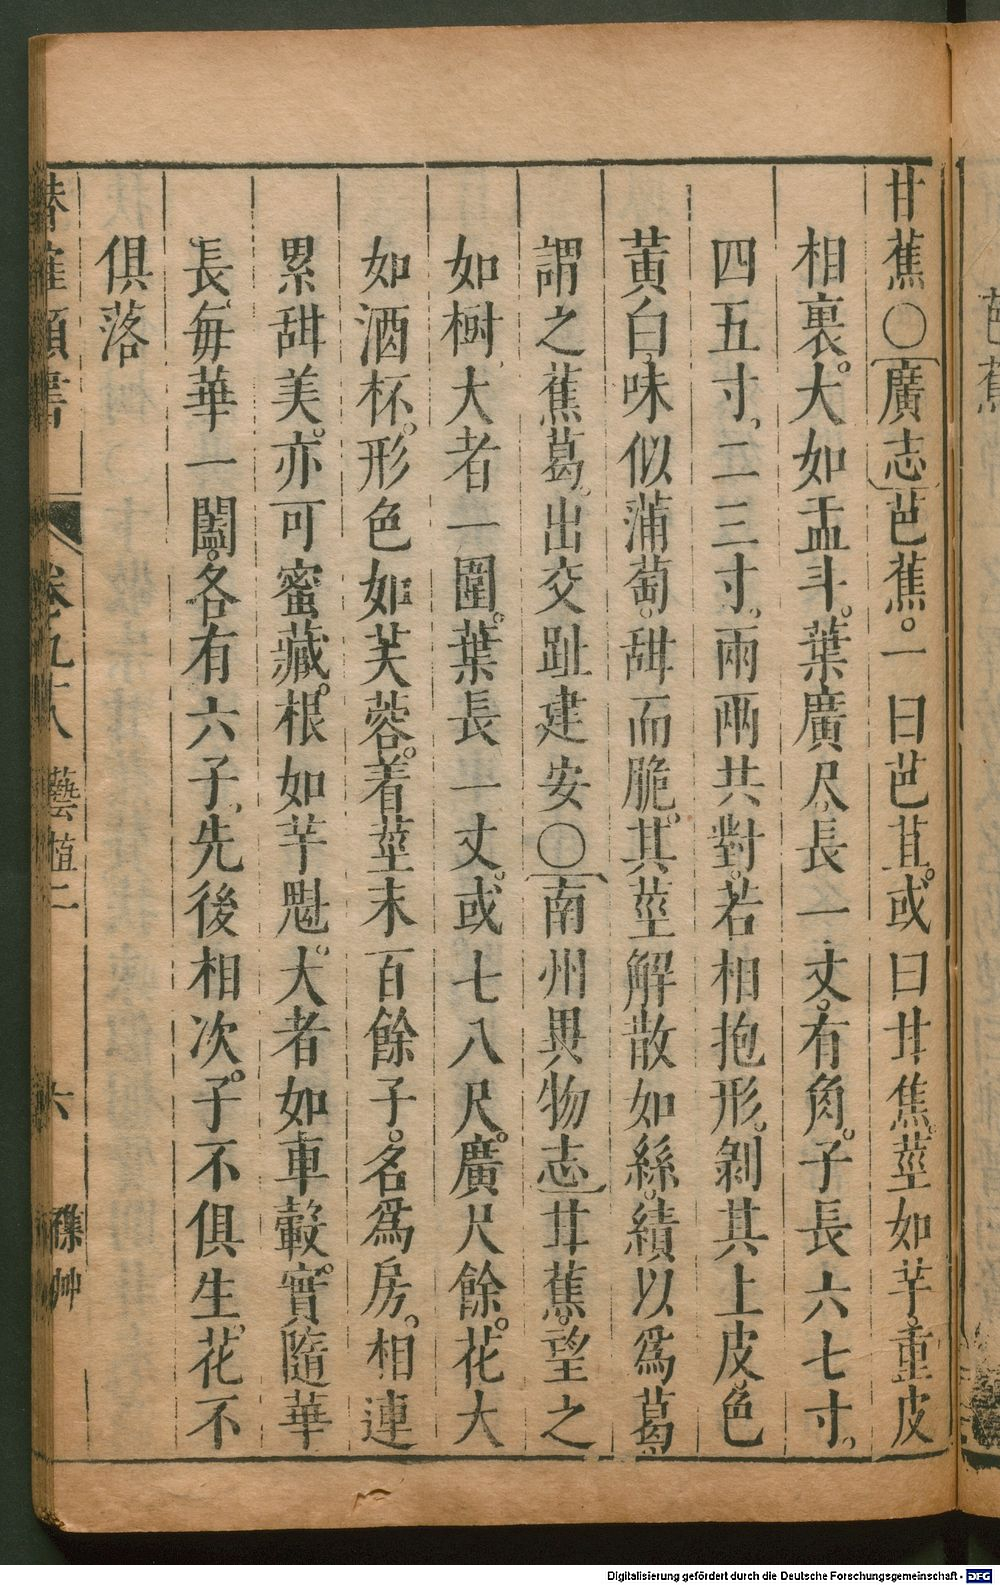 甘蕉○廣志芭蕉。一曰芭苴。或曰甘焦。莖如芋。重皮
相裹。大如盂斗。葉廣尺。長一丈。有角。子長六七寸。
四五寸。二三寸。兩兩共對。若相抱形。剝其上皮。色
黃白。味似蒲萄。甜而脆。其莖解散如絲。績以爲葛
謂之蕉葛。出交趾建安○南州異物志甘蕉。望之
如樹。大者一圍。葉長一丈。或七八尺。廣尺餘。花大
如酒杯。形色如芙蓉。着莖末百餘子。名爲房。相連
累甜美。亦可蜜藏。根如芋魁。大者如車轂。實隨華
長。每華一闔。各有六子。先後相次。子不俱生。花不
俱落
類書 卷九十八 藝植二 六 襍艸
芭蕉
Digitalisierung gefördert durch die Deutsche Forschungsgemeinschaft - DFG